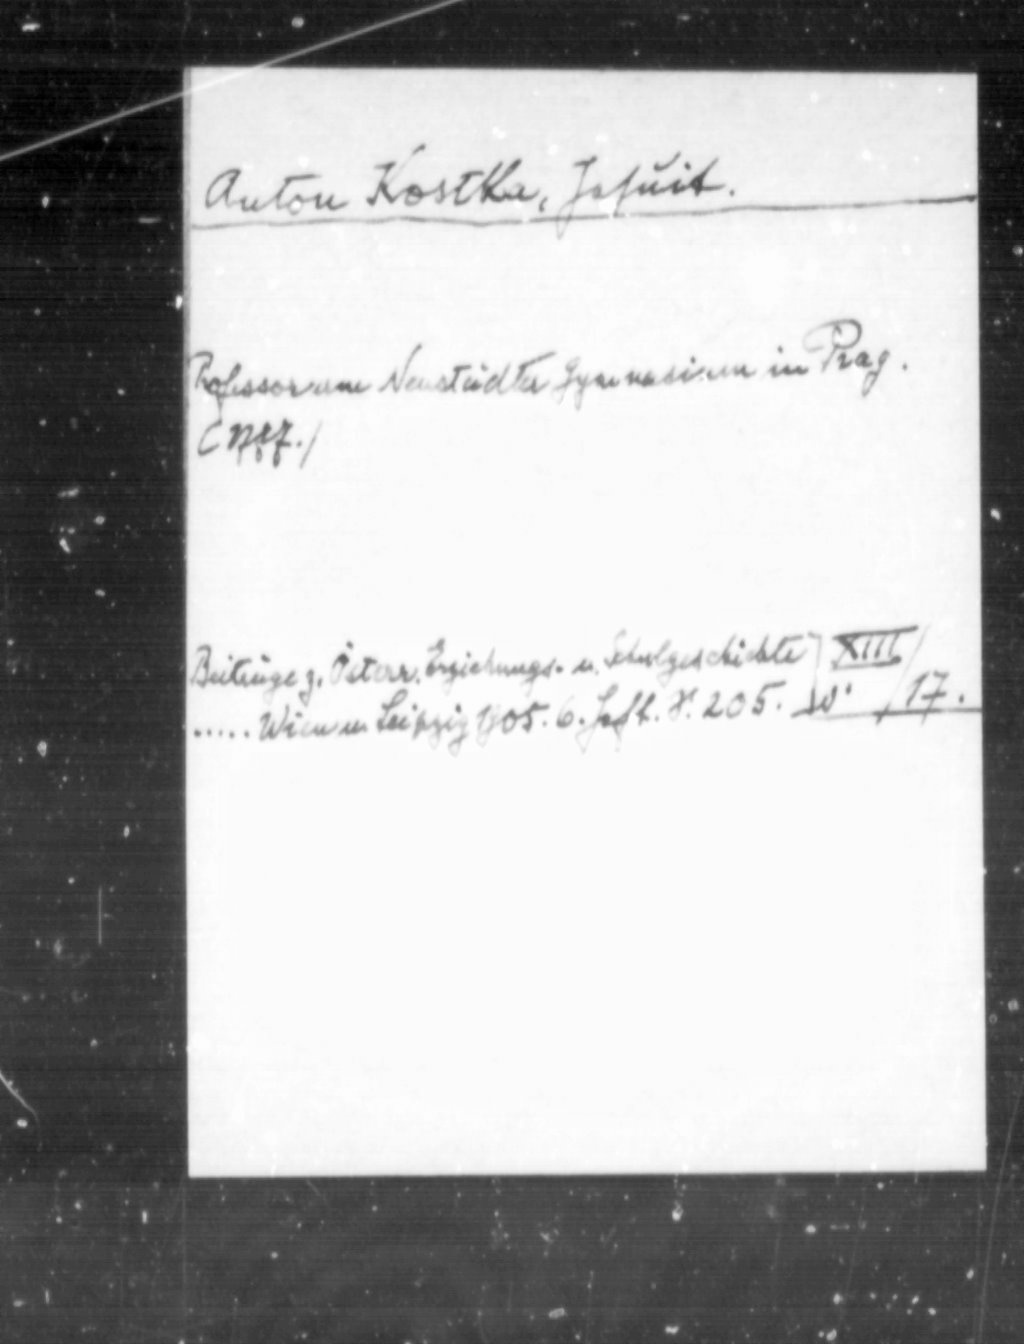 Anton Kostka, Jesuit.
Professor am Neustädter Gymnasium in Prag.
Beiträge z. Österr. Erziehungs- u. Schulgeschichte XIII/
..... Wien u. Leipzig 1905. 6. Heft. S. 205. /17.